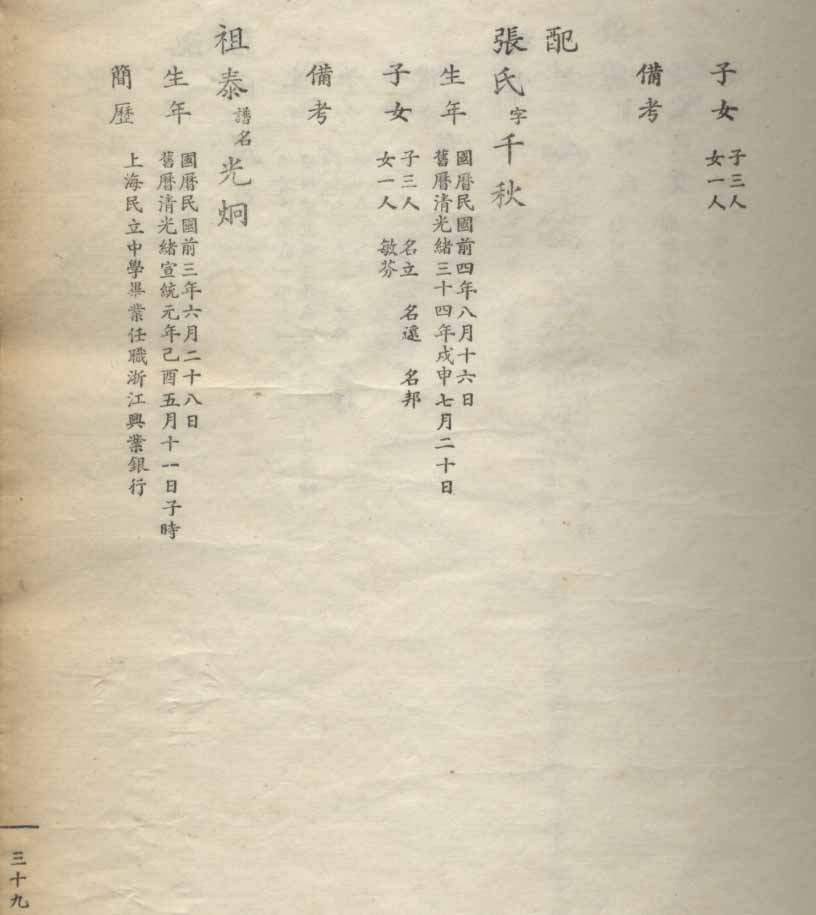 子女 子三人
女一人
備考
配
張氏 字 千秋
生年 國曆民國前四年八月十六日
舊曆清光緒三十四年戊申七月二十日
子女 子三人 名立 名遠 名邦
女一人 敏芬
備考
祖泰 譜名 光炯
生年 國曆民國前三年六月二十八日
舊曆清光緒宣統元年己酉五月十一日子時
簡歷 上海民立中學畢業任職浙江興業銀行
三十九